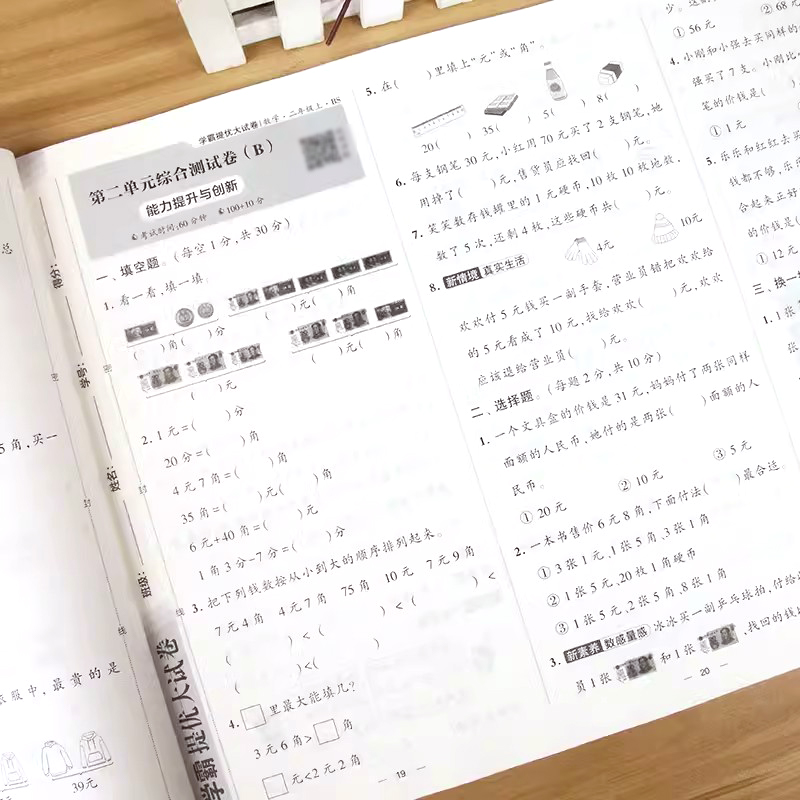 总
5角,买一
服中,最贵的是
39元
得分:
学号:
姓名:
班级:
密
封
线
学霸提优大试卷
学霸提优大试卷 数学·二年级上·BS
第二单元综合测试卷(B)
能力提升与创新
考试时间:60分钟 100+10分
一、填空题。(每空1分,共30分)
1.看一看,填一填。
( )角( )分
( )元( )角
( )元
( )元( )角
2.1元=( )分
20分=( )角
4元7角=( )角
35角=( )元( )角
6元+40角=( )元
1角3分-7分=( )分
3.把下列钱数按从小到大的顺序排列起来。
7元4角 4元7角 75角 10元 7元9角
( )<( )<( )<
( )<( )
4.□里最大能填几?
3元6角>□角
□元<2元2角
19
5.在( )里填上“元”或“角”。
20( ) 35( ) 5( ) 8( )
6.每支钢笔30元,小红用70元买了2支钢笔,她
用掉了( )元,售货员应找回( )元。
7.笑笑数存钱罐里的1元硬币,10枚10枚地数,
数了5次,还剩4枚,这些硬币共( )元。
8.新情境 真实生活
4元
10元
欢欢付5元钱买一副手套,营业员错把欢欢给
的5元看成了10元,找给欢欢( )元,欢欢
应该退给营业员( )元。
二、选择题。(每题2分,共10分)
1.一个文具盒的价钱是31元,妈妈付了两张同样
面额的人民币,她付的是两张( )面额的人
民币。
①20元 ②10元 ③5元
2.一本书售价6元8角,下面付法( )最合适。
①3张1元,1张5角,3张1角
②1张5元,20枚1角硬币
③1张5元,2张5角,8张1角
3.新素养 数感量感 冰冰买一副乒乓球拍,付给
员1张 和1张 ,找回的钱
20
少。
①56元 ②68
4.小刚和小强去买同样的
强买了7支。小刚比
笔的价钱是(
①1元
5.乐乐和红红去买
钱都不够,乐
合起来正好
的价钱是(
①12元
三、换一
1.1张
1张